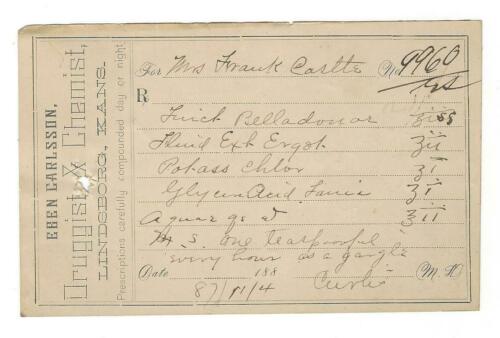 EBEN CARLSSON,
Druggist & Chemist,
LINDSBORG, KANS.
Prescriptions carefully compounded day or night
For Mrs Frank Caslts No 9960
R
Tinct Belladonae
Fluid Ext Ergot ʒii
Potass Chlor ʒi
Glycer Acid Tanic ʒi
Aquae qs ad ʒii
M. S. one teaspoonful
every hour as a gargle
Date 188
87/11/4 Curtis M. D.